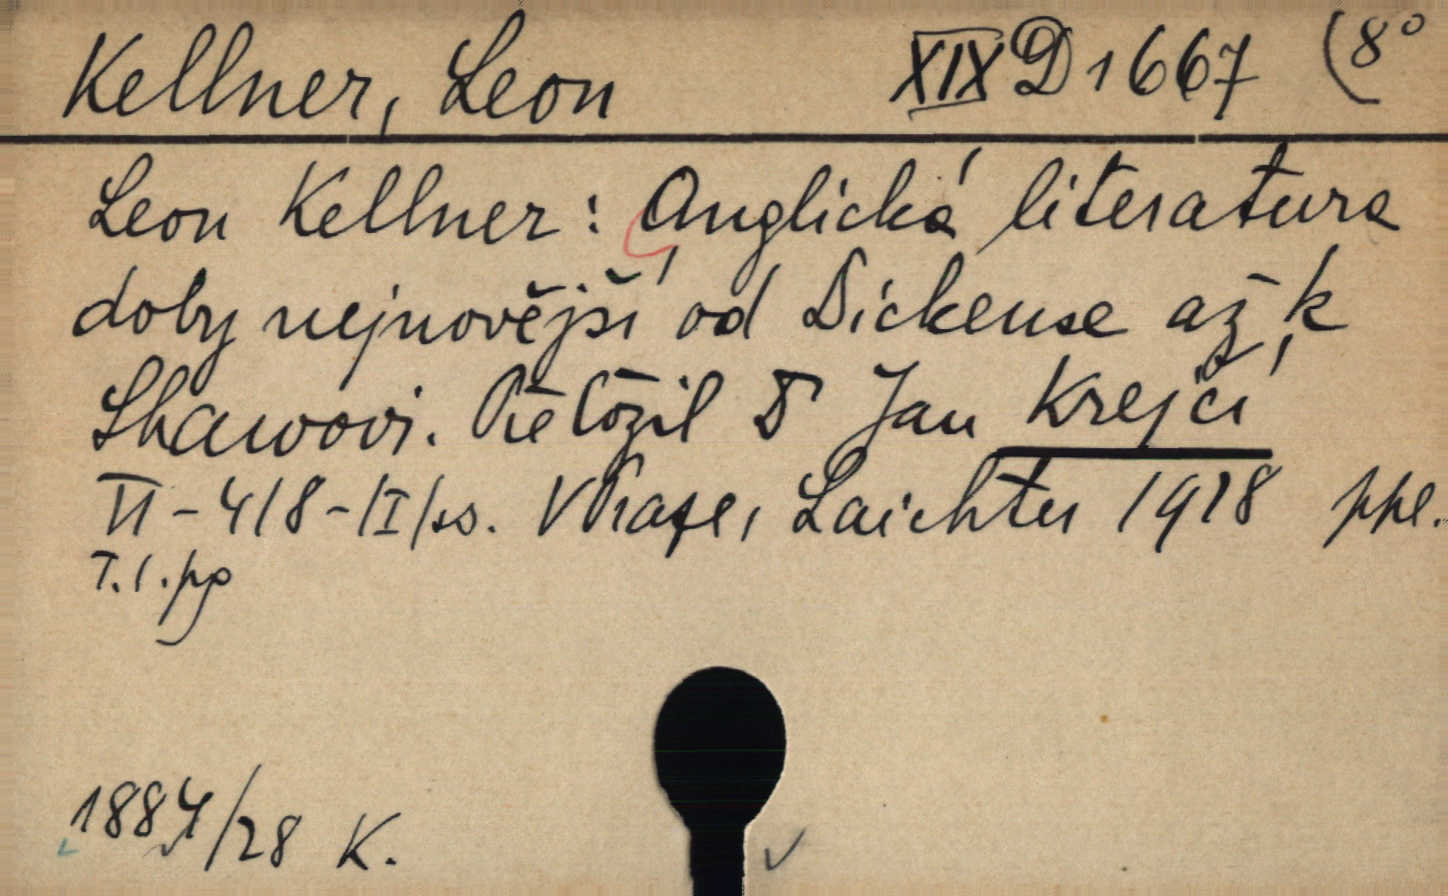 Kellner, Leon XIX D 1667 (8°
Leon Kellner: Anglická literatura
doby nejnovější od Dickense až k
Shawovi. Přeložil Dr Jan Krejčí
VI-418-/I/ss. V Praze, Laichter 1928 ppl.
T.l.pp
1884/28 K.